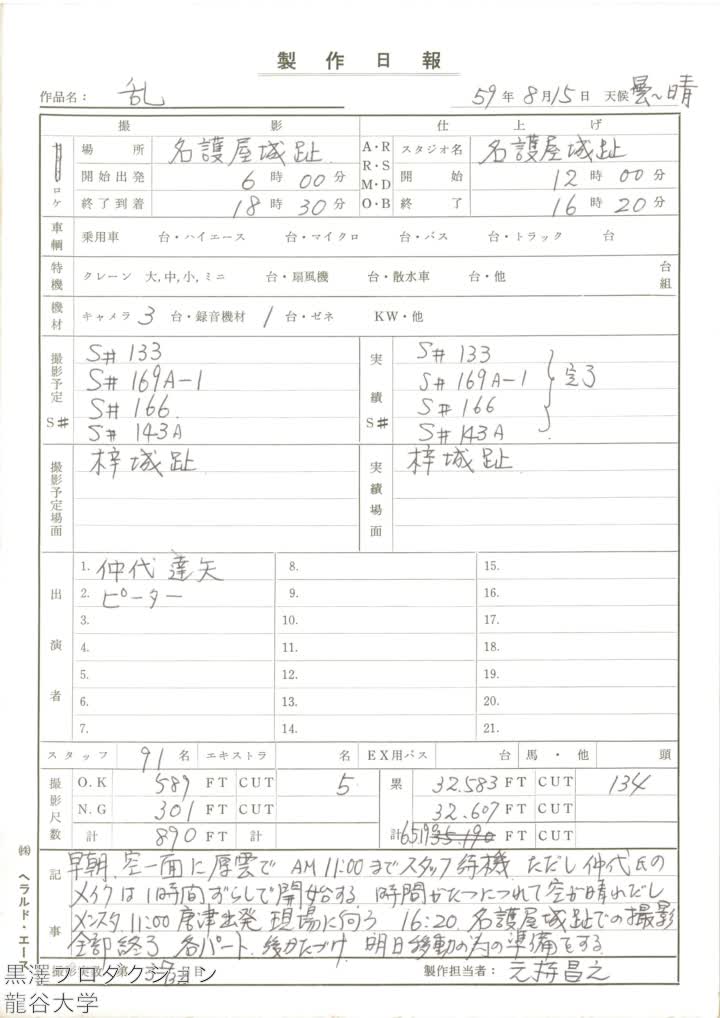 製作日報
作品名: 乱
59年 8月15日 天候 曇〜晴
撮影 仕上げ
ロケ 場所 名護屋城趾 A・R R・S M・D O・B スタジオ名 名護屋城趾
開始出発 6時00分 開始 12時00分
終了到着 18時30分 終了 16時20分
車輌 乗用車 台・ハイエース 台・マイクロ 台・バス 台・トラック 台
特機 クレーン 大,中,小,ミニ 台・扇風機 台・散水車 台・他 台組
機材 キャメラ 3 台・録音機材 1 台・ゼネ KW・他
撮影予定 S# 実績 S#
S# 133 S# 133
S# 169A-1 S# 169A-1 完了
S# 166 S# 166
S# 143A S# 143A
撮影予定場面 梓城趾 実績場面 梓城趾
出演者
1. 仲代達矢 8. 15.
2. ピーター 9. 16.
3. 10. 17.
4. 11. 18.
5. 12. 19.
6. 13. 20.
7. 14. 21.
スタッフ 91名 エキストラ 名 EX用バス 台 馬・他 頭
撮影尺数 O.K 589 FT CUT 5 累計 32.583 FT CUT 134
N.G 301 FT CUT 32.607 FT CUT
計 890 FT 計 FT CUT
記事
早朝、空一面に厚雲で AM 11:00までスタッフ待機 ただし仲代氏の
メイクは1時間ずらしで開始する 時間がたつにつれて空が晴れだし
メンスタ 11:00 唐津出発 現場に向う 16:20 名護屋城趾での撮影
全部終了 各パート 後かたづけ 明日移動の為の準備をする
製作担当者: 元持昌之
㈱ ヘラルド・エース
黒澤プロダクション
龍谷大学